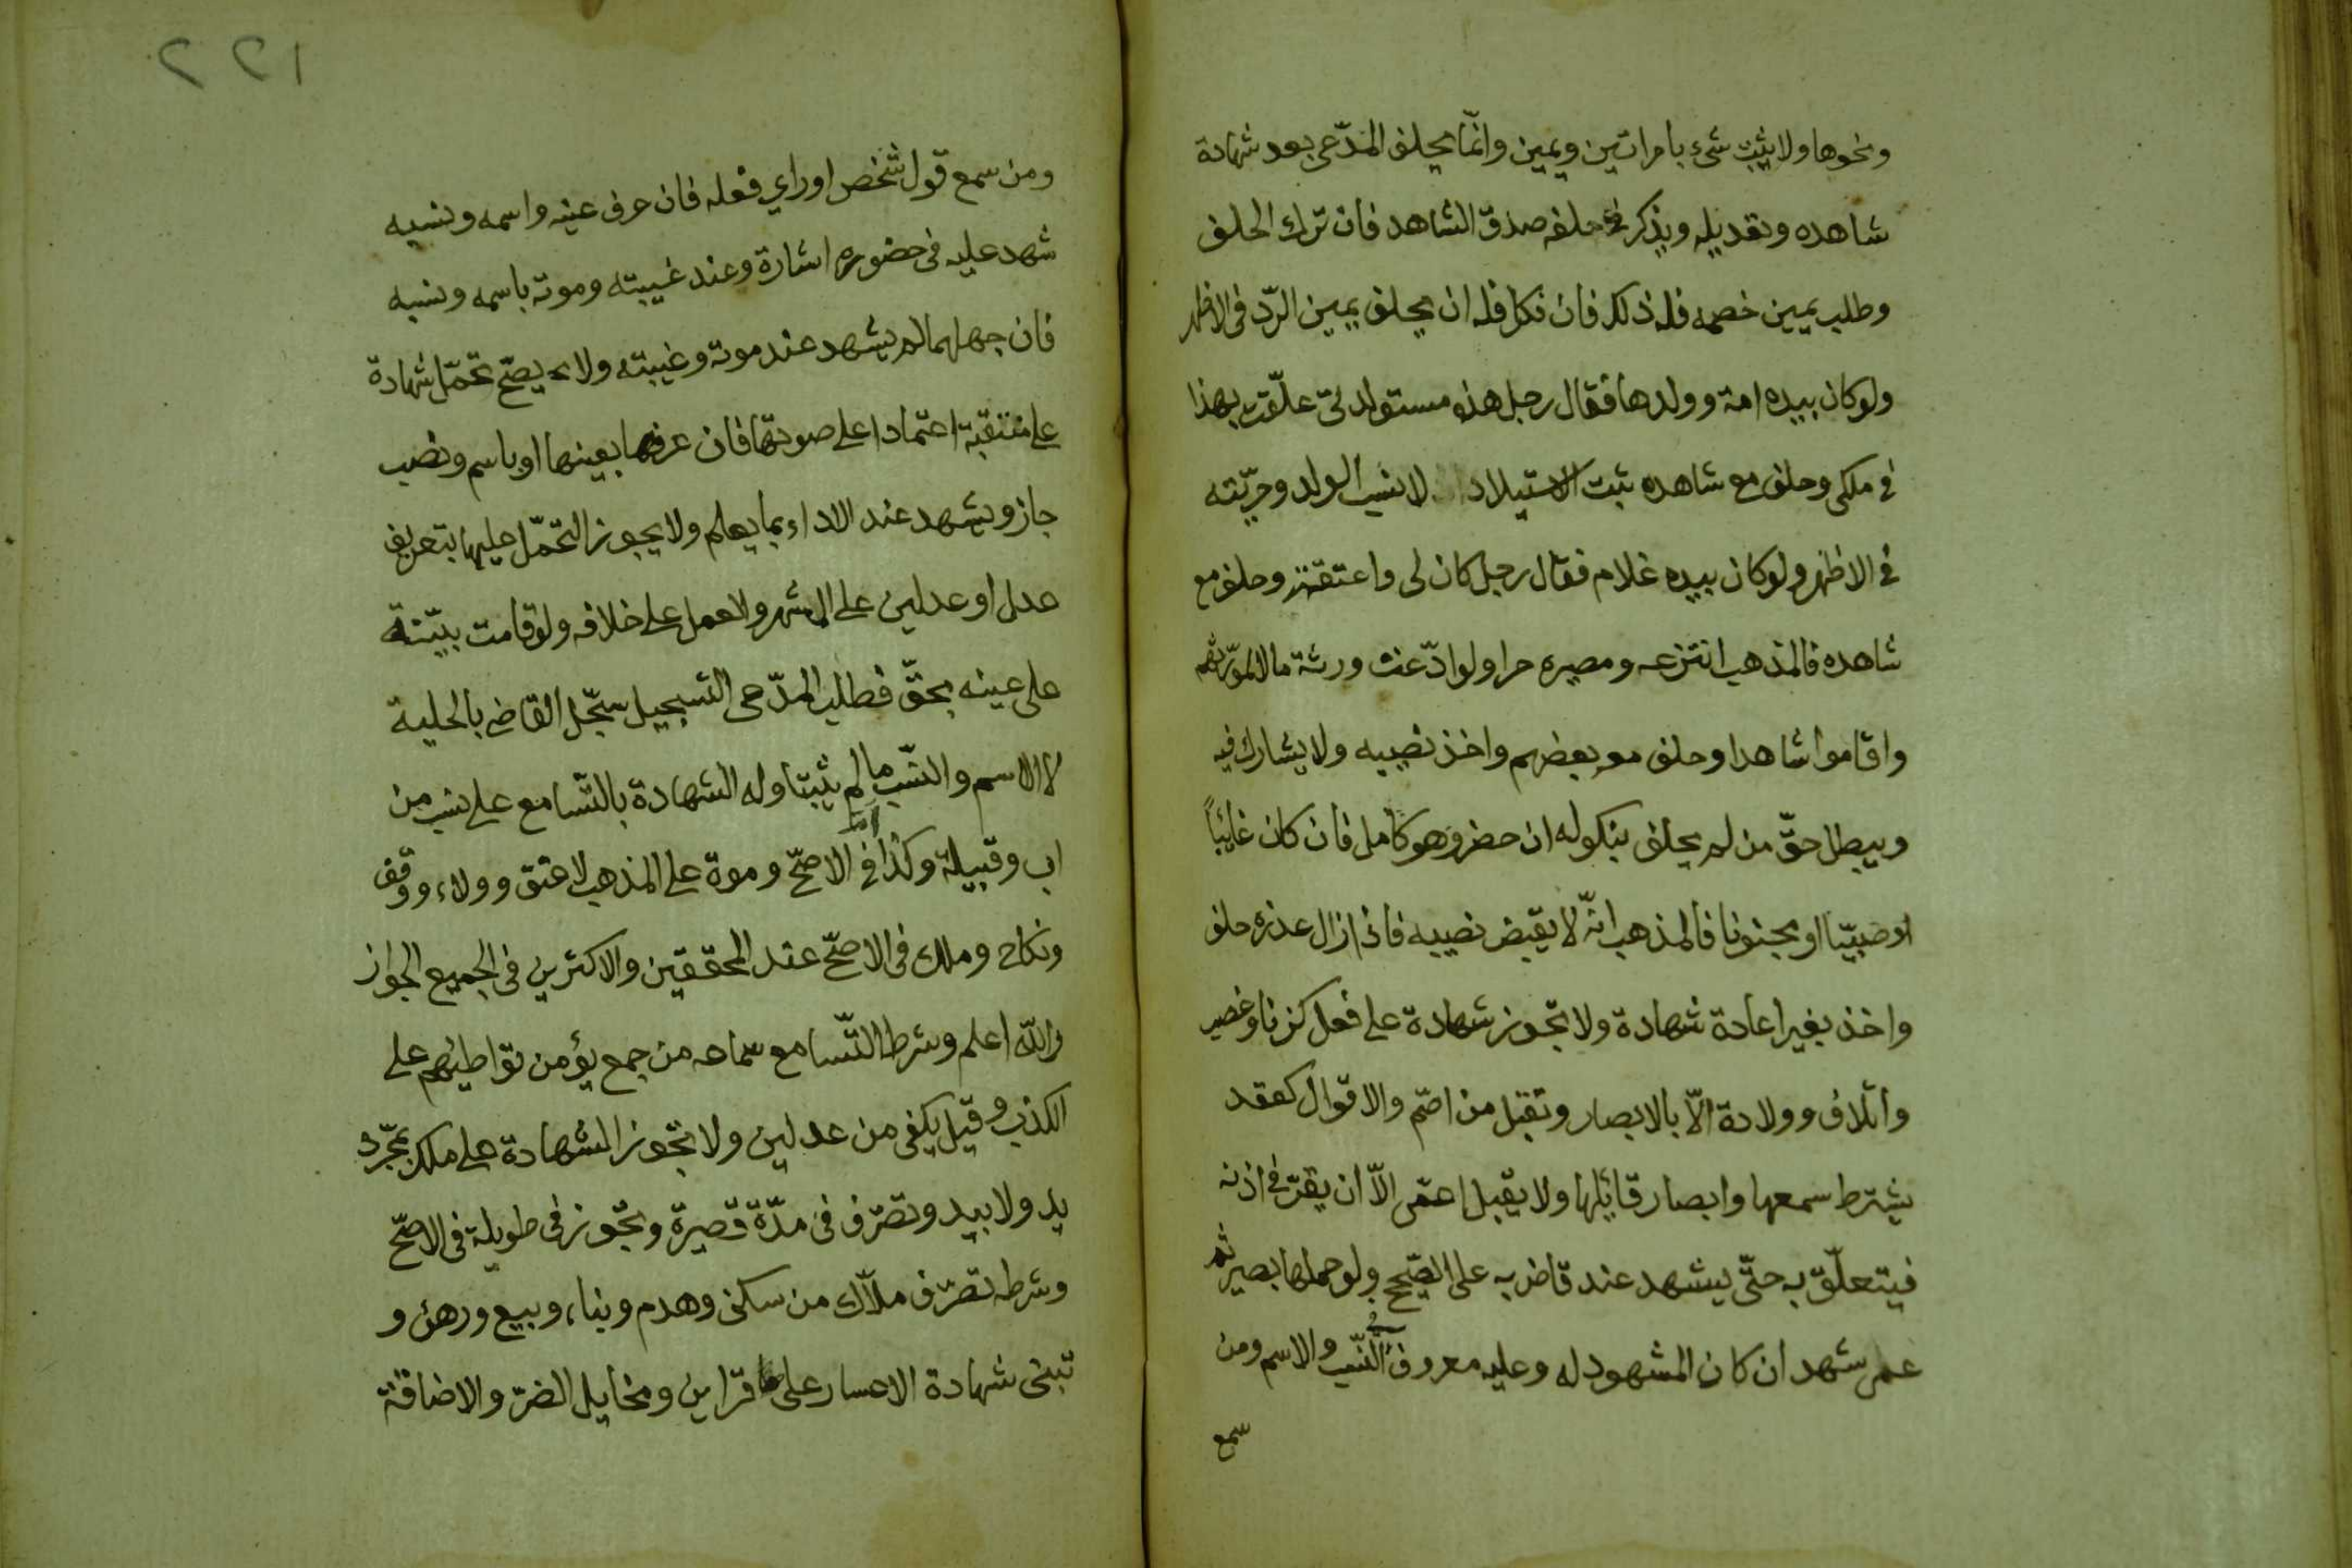 ونحوها ولا يثبت شيء بامراتين ويمين وانّما يحلف المدّعى بعد شهادة
شاهده وتعديله ويذكر في حلفه صدق الشاهد فان ترك الحلف
وطلب يمين خصمه فله ذلك فان نكل فله ان يحلف يمين الردّ فى الاظهر
ولو كان بيده امة وولدها فقال رجل هذه مستولدتى علّقت بهذا
في ملكى وحلف مع شاهده ثبت الاستيلاد لا نسب الولد وحرّيته
في الاظهر ولو كان بيده غلام فقال رجل كان لى واعتقته وحلف مع
شاهده فالمذهب انتزعه ومصيره حرا ولو ادّعت ورثة مالا لمورّثهم
واقاموا شاهدا وحلف معه بعضهم واخذ نصيبه ولا يشارك فيه
ويبطل حقّ من لم يحلف بنكوله ان حضر وهو كامل فان كان غائباً
او صبيّا او مجنونا فالمذهب انّه لا يقبض نصيبه فاذا زال عذره حلف
واخذ بغير اعادة شهادة ولا تجوز شهادة على فعل كزنا وغصب
واتلاف وولادة الّا بالابصار وتقبل من اصمّ والاقوال كعقد
يشترط سمعها وابصار قائلها ولا يقبل اعمى الّا ان يقرّ في اذنه
فيتعلّق به حتّى يشهد عند قاض به على الصّحيح ولو حملها بصير ثم
عمى شهد ان كان المشهود له وعليه معروفى النّسب والاسم ومن
سمع
١٢٢
ومن سمع قول شخص او راي فعله فان عرف عينه واسمه ونسبه
شهد عليه فى حضوره اشارة وعند غيبته وموته باسمه ونسبه
فان جهلهما لم يشهد عند موته وغيبته ولا يصحّ تحمّل شهادة
على منتقبة اعتمادا على صوتها فان عرفها بعينها او باسم ونصب
جاز ويشهد عند الاداء بما يعلم ولا يجوز التحمّل عليها بتعريف
عدل او عدلين على الاشهر ولا عمل على خلافه ولو قامت بيّنة
على عينه بحقّ فطلب المدّعى التسجيل سجّل القاضى بالحلية
لا الاسم والنسب ما لم يثبتا وله الشهادة بالتّسامع على نسب من
اب وقبيلة وكذا امّ في الاصحّ وموة على المذهب لا عتق وولاء ووقف
ونكاح وملك فى الاصحّ عند المحققين والاكثرين فى الجميع الجواز
والله اعلم وشرط التّسامع سماعه من جمع يؤمن تواطئهم على
الكذب وقيل يكفى من عدلين ولا تجوز الشهادة على ملك بمجرّد
يد ولا بيد وتصرّف فى مدّة قصيرة وتجوز فى طويلة فى الاصحّ
وشرطه تصرّف ملّاك من سكنى وهدم وبناء وبيع ورهن و
تبنى شهادة الاعسار على قراين ومخايل الضرّ والاضاقة